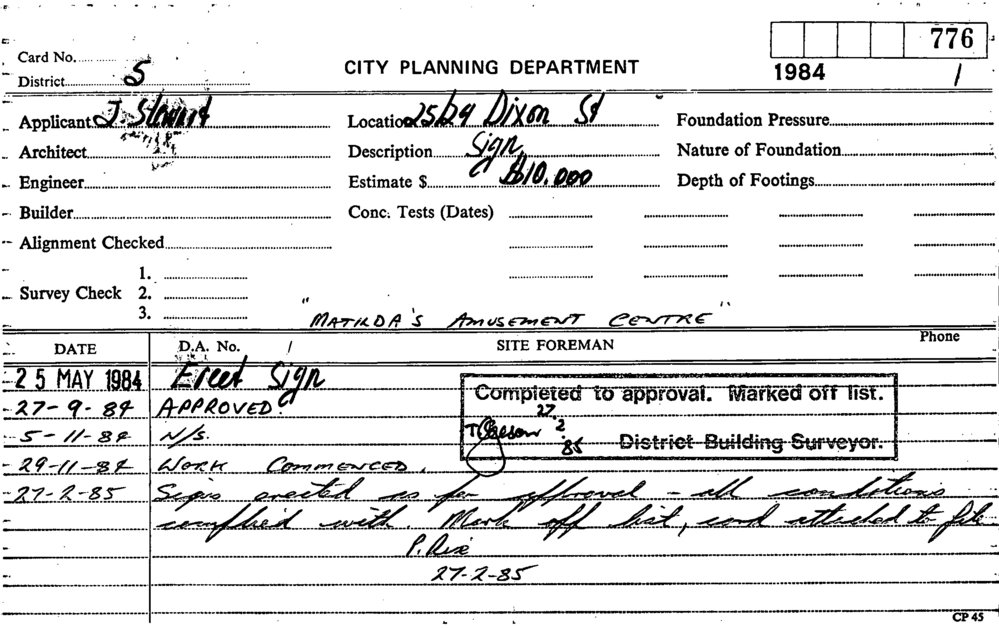 776
Card No.
CITY PLANNING DEPARTMENT
1984 1
District 5
Applicant J. Stewart Location 25/29 Dixon St Foundation Pressure
Architect Description Sign Nature of Foundation
Engineer Estimate $ $10,000 Depth of Footings
Builder Conc. Tests (Dates)
Alignment Checked
1.
Survey Check 2.
3.
"MATILDA'S AMUSEMENT CENTRE"
DATE D.A. No. / SITE FOREMAN Phone
25 MAY 1984 Erect Sign
Completed to approval. Marked off list.
27-9-84 APPROVED.
27.2.85
5-11-84 N/S.
District Building Surveyor.
29-11-84 WORK COMMENCED.
27-2-85 Signs erected as per approval - all conditions
complied with. Mark off list, card attached to file
P. Rix
27-2-85
CP 45